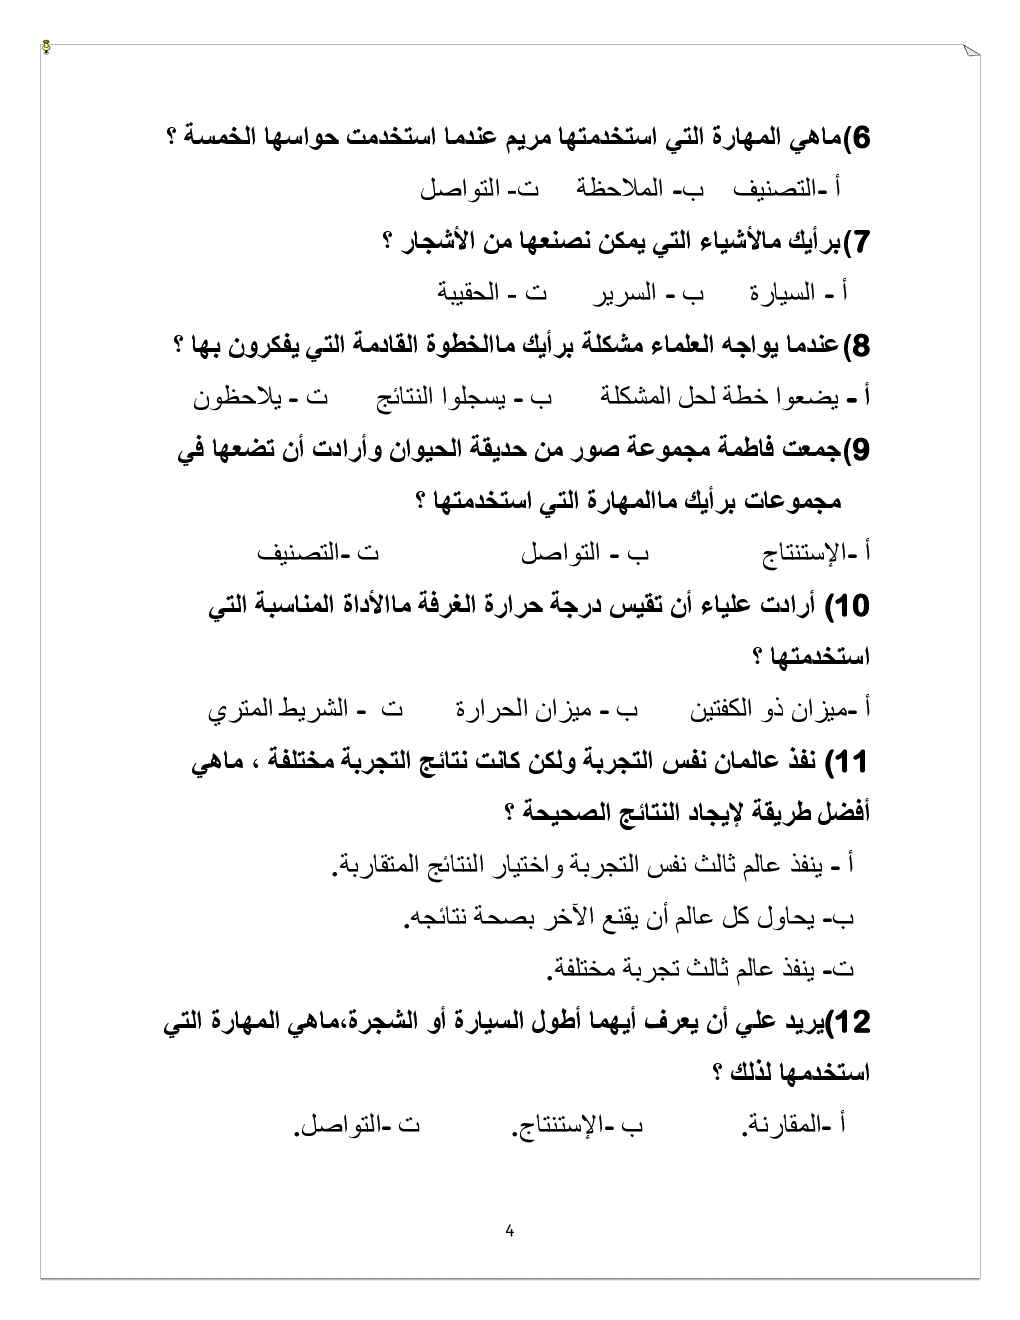 6)ماهي المهارة التي استخدمتها مريم عندما استخدمت حواسها الخمسة ؟
أ -التصنيف ب- الملاحظة ت- التواصل
7)برأيك مالأشياء التي يمكن نصنعها من الأشجار ؟
أ - السيارة ب - السرير ت - الحقيبة
8)عندما يواجه العلماء مشكلة برأيك ماالخطوة القادمة التي يفكرون بها ؟
أ - يضعوا خطة لحل المشكلة ب - يسجلوا النتائج ت - يلاحظون
9)جمعت فاطمة مجموعة صور من حديقة الحيوان وأرادت أن تضعها في
مجموعات برأيك ماالمهارة التي استخدمتها ؟
أ -الإستنتاج ب - التواصل ت -التصنيف
10) أرادت علياء أن تقيس درجة حرارة الغرفة ماالأداة المناسبة التي
استخدمتها ؟
أ -ميزان ذو الكفتين ب - ميزان الحرارة ت - الشريط المتري
11) نفذ عالمان نفس التجربة ولكن كانت نتائج التجربة مختلفة ، ماهي
أفضل طريقة لإيجاد النتائج الصحيحة ؟
أ - ينفذ عالم ثالث نفس التجربة واختيار النتائج المتقاربة.
ب- يحاول كل عالم أن يقنع الآخر بصحة نتائجه.
ت- ينفذ عالم ثالث تجربة مختلفة.
12)يريد علي أن يعرف أيهما أطول السيارة أو الشجرة،ماهي المهارة التي
استخدمها لذلك ؟
أ -المقارنة. ب -الإستنتاج. ت -التواصل.
4